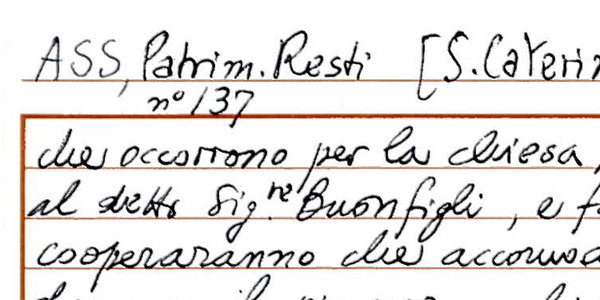 ASS, Patrim. Resti [S. Caterin
n° 137
che occorrono per la chiesa,
al detto Sig.re Buonfigli, e f
cooperaranno che